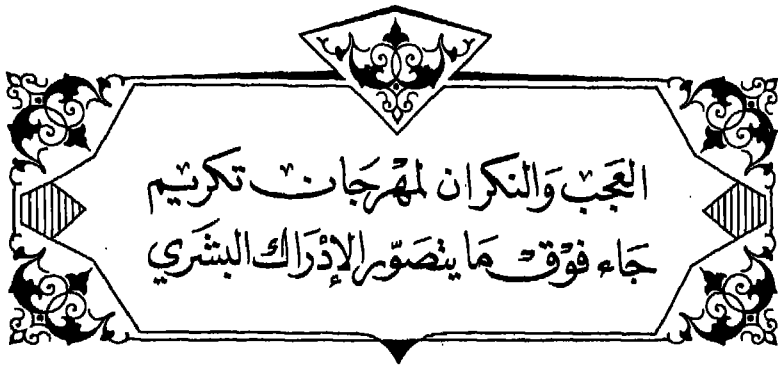 العَجَب وَالنكران لمهْرجَان تكريم
جَاء فوْق مَا يتصَوّر الإدْرَاك البشَري